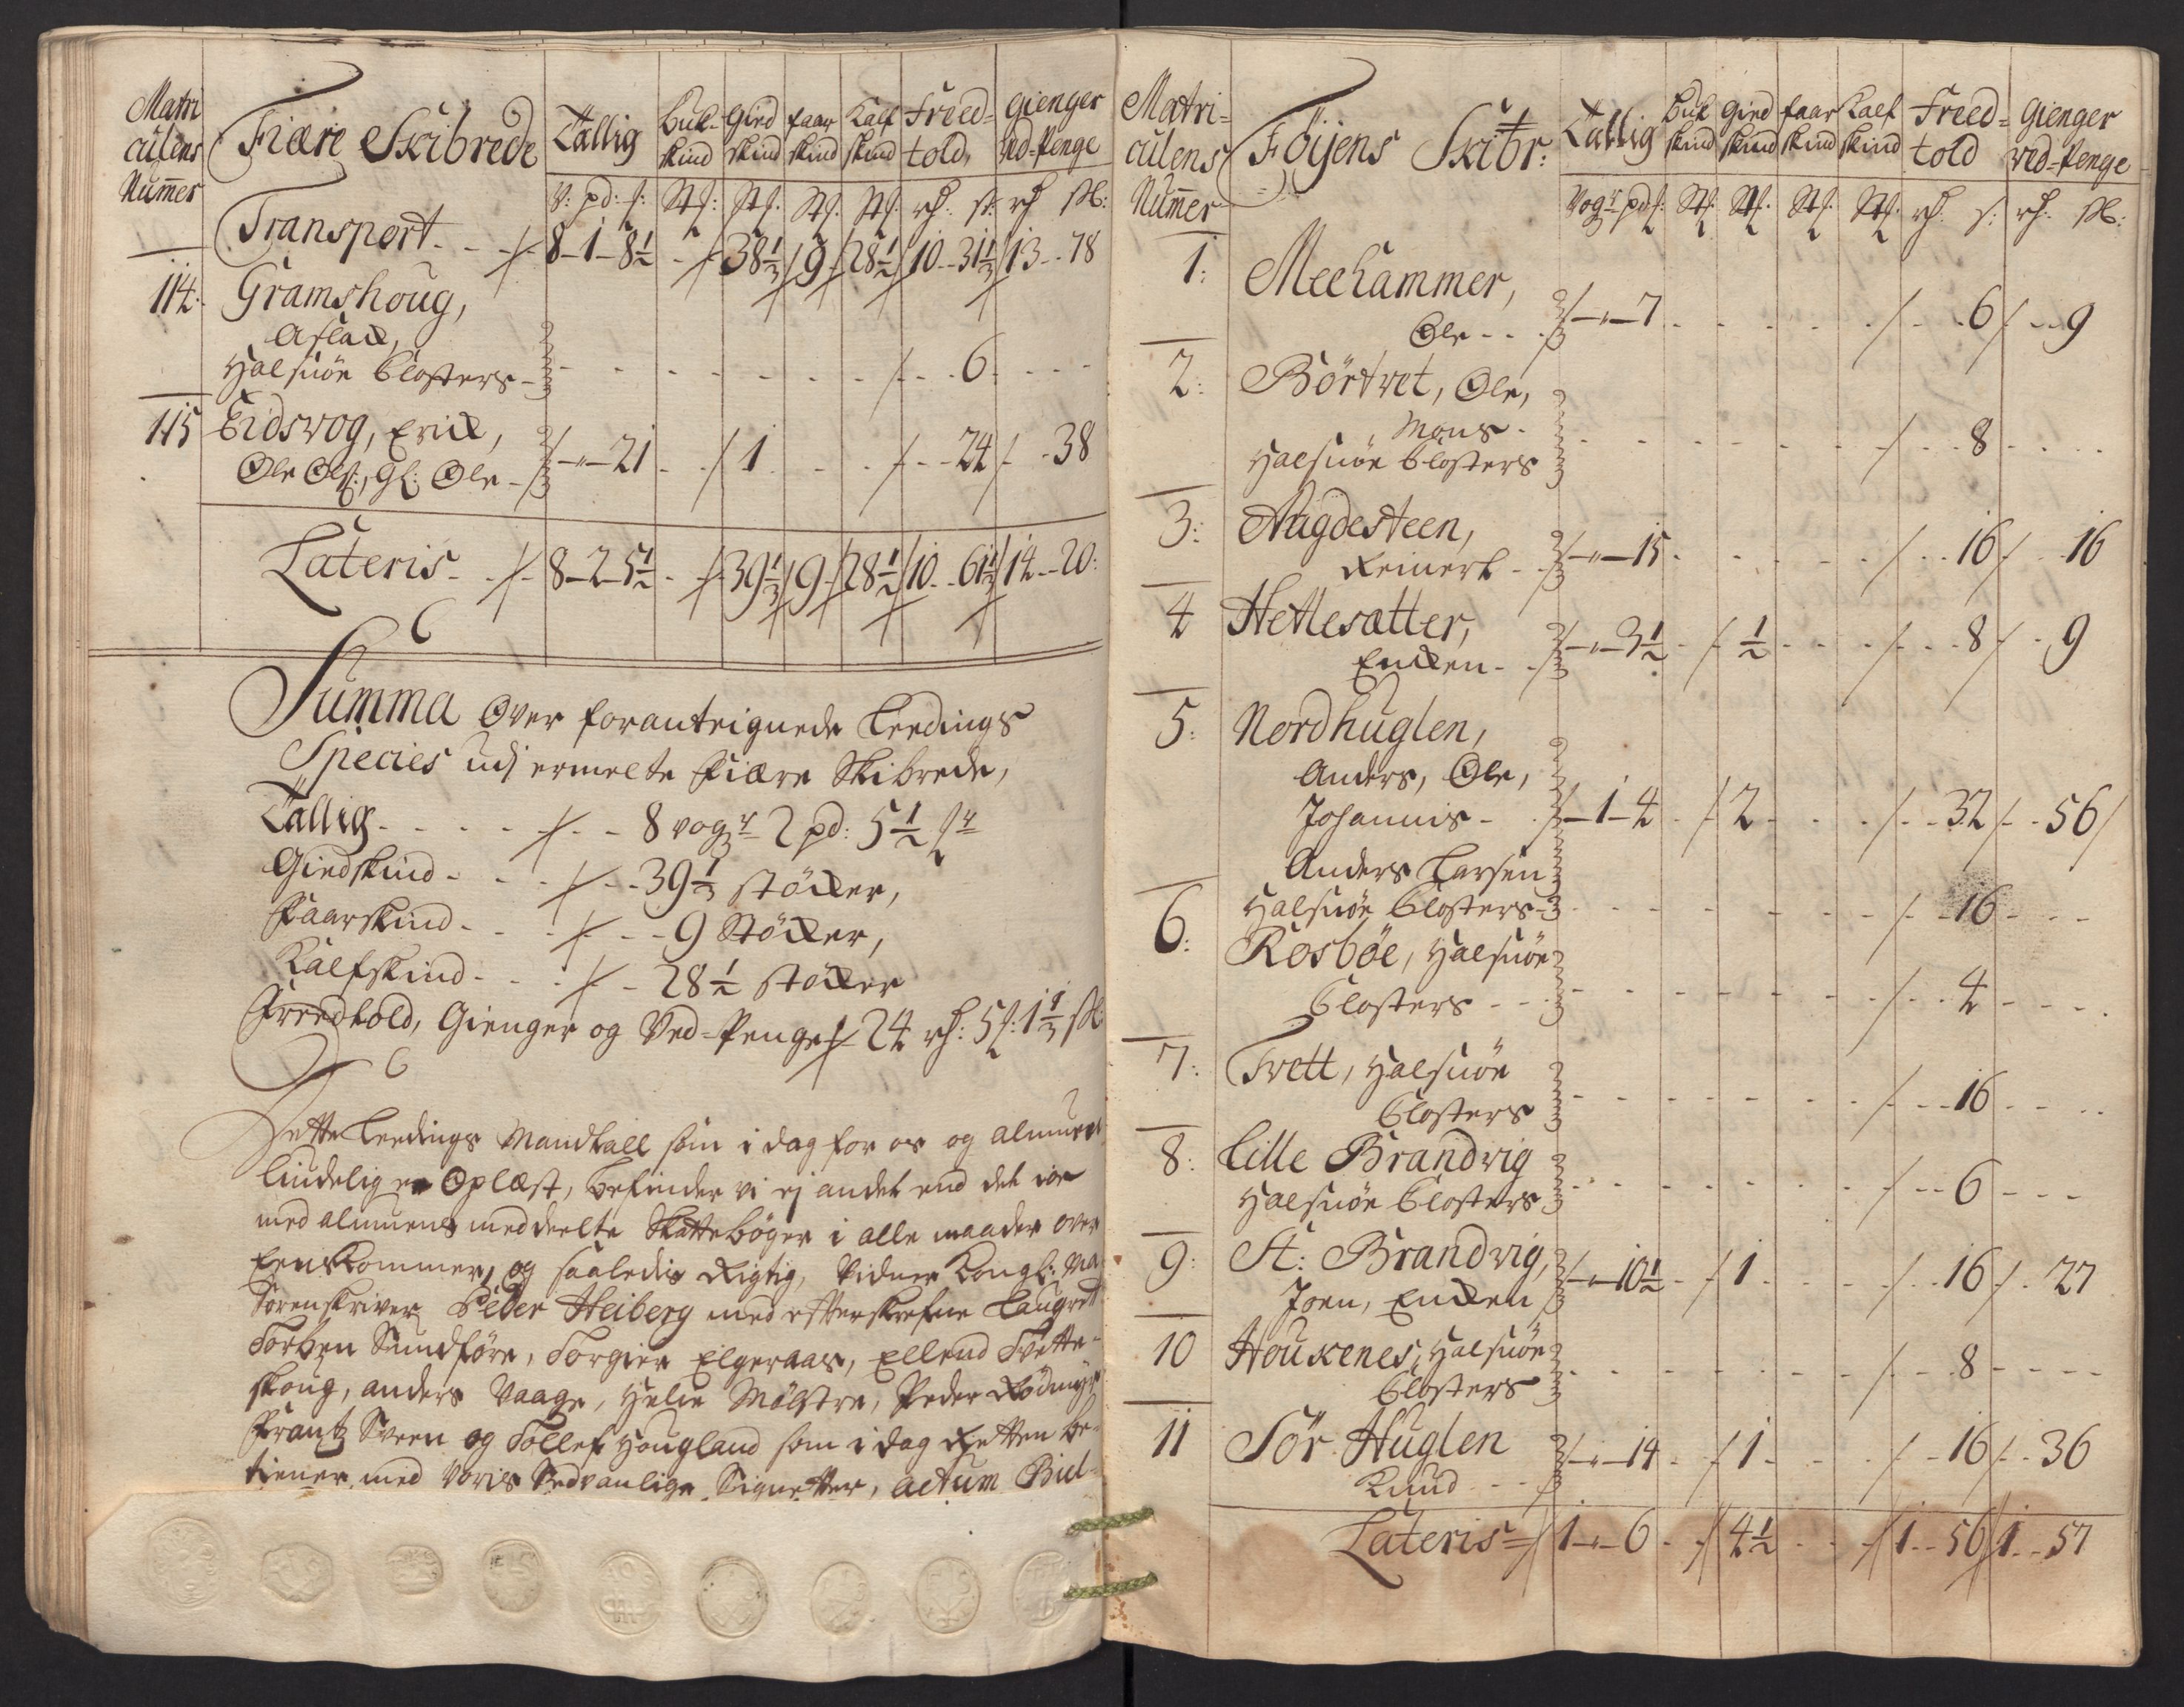 Matri
culens
Nummer
Fiære Skibrede
Tallig
Buk-
skind
Gied
skind
faar
skind
Kalf
skind
Freed-
told,
Gienger
ved-Penge
V: pd: 
Transport - - 8-1-8½ - 38⅓ 9 28½ 10 - 31⅓ 13 - 78
114. Gramshoug,
Aslack,
Halsnöe Closters - - - - - - - - 6 - - -
115 Eidsvog, Erick,
Ole Ols:, Gl: Ole - 21 - - 1 - - - 24 - 38
Lateris - - 8-2-5½ - 39⅓ 9 28½ 10 - 61⅓ 14 - 20:
Summa Over foranteignede Leedings
Species udj ermelte Fiære Skibrede,
Tallig - - - - - 8 vogr 2 pd: 5½
Giedskind - - - 39⅓ stöcker,
Faarskind - - - 9 Stöcker,
Kalfskind - - - 28½ stöcker
Freedtold, Gienger og Ved-Penge 24 1⅓
Dette Leedings Mandtall som i dag for os og almuen
lindelig er Oplæst, befinder vi ej andet end det jo
med almuens meddeelte Skattebøger i alle maader over
Eenskommer, og saaledis Rigtig, Vidner Kongl: Ma
Sorenskriver Peder Heiberg med efterskrefne Laugret
Torben Sundføre, Torgier Elgeraas, Ellend Tvette-
skoug, anders Vaage, Helie Mölstre, Peder Rödmyr
Frantz Sveen og Tollef Hougland som i dag Retten be-
tiener med voris Sedvanlige Signetter, actum Biel-
Matri-
culens
Nummer
Föijens Skibr:
Tallig
Buk
skind
Gied
skind
faar
skind
Kalf
skind
Freed-
told
Gienger
ved-Penge
Vogr pd: 
1: Meehammer,
Ole - - - 7 - - - - - 6 - - 9
2: Börtvet, Ole,
Mons -
Halsnöe Closters - - - - - - 8 - - -
3: Augdesteen,
Reinert - - 15 - - - - - 16 - - 16
4 Hettesætter,
Encken - - 3½ - ½ - - - - 8 - 9
5: Nordhuglen,
Anders, Ole,
Johannis - - 1-4 - 2 - - - - 32 - - 56
Anders Larsen
Halsnöe Closters - - - - - - - 16 - - -
6: Rosböe, Halsnöe
Closters - - - - - - - - 4 - - -
7: Tvett, Halsnöe
Closters - - - - - - - - 16 - - -
8: Lille Brandvig
Halsnöe Closters - - - - - - - 6 - - -
9: St: Brandvig,
Joen, Encken - 10½ - 1 - - - - 16 - 27
10 Houkenes, Halsnöe
Closters - - - - - - - - 8 - - -
11 Sör Huglen
Knud - - - 14 - 1 - - - 16 - - 36
Lateris = 1 - 6 - - 4½ - - - 1 - - 56 1 - - 57